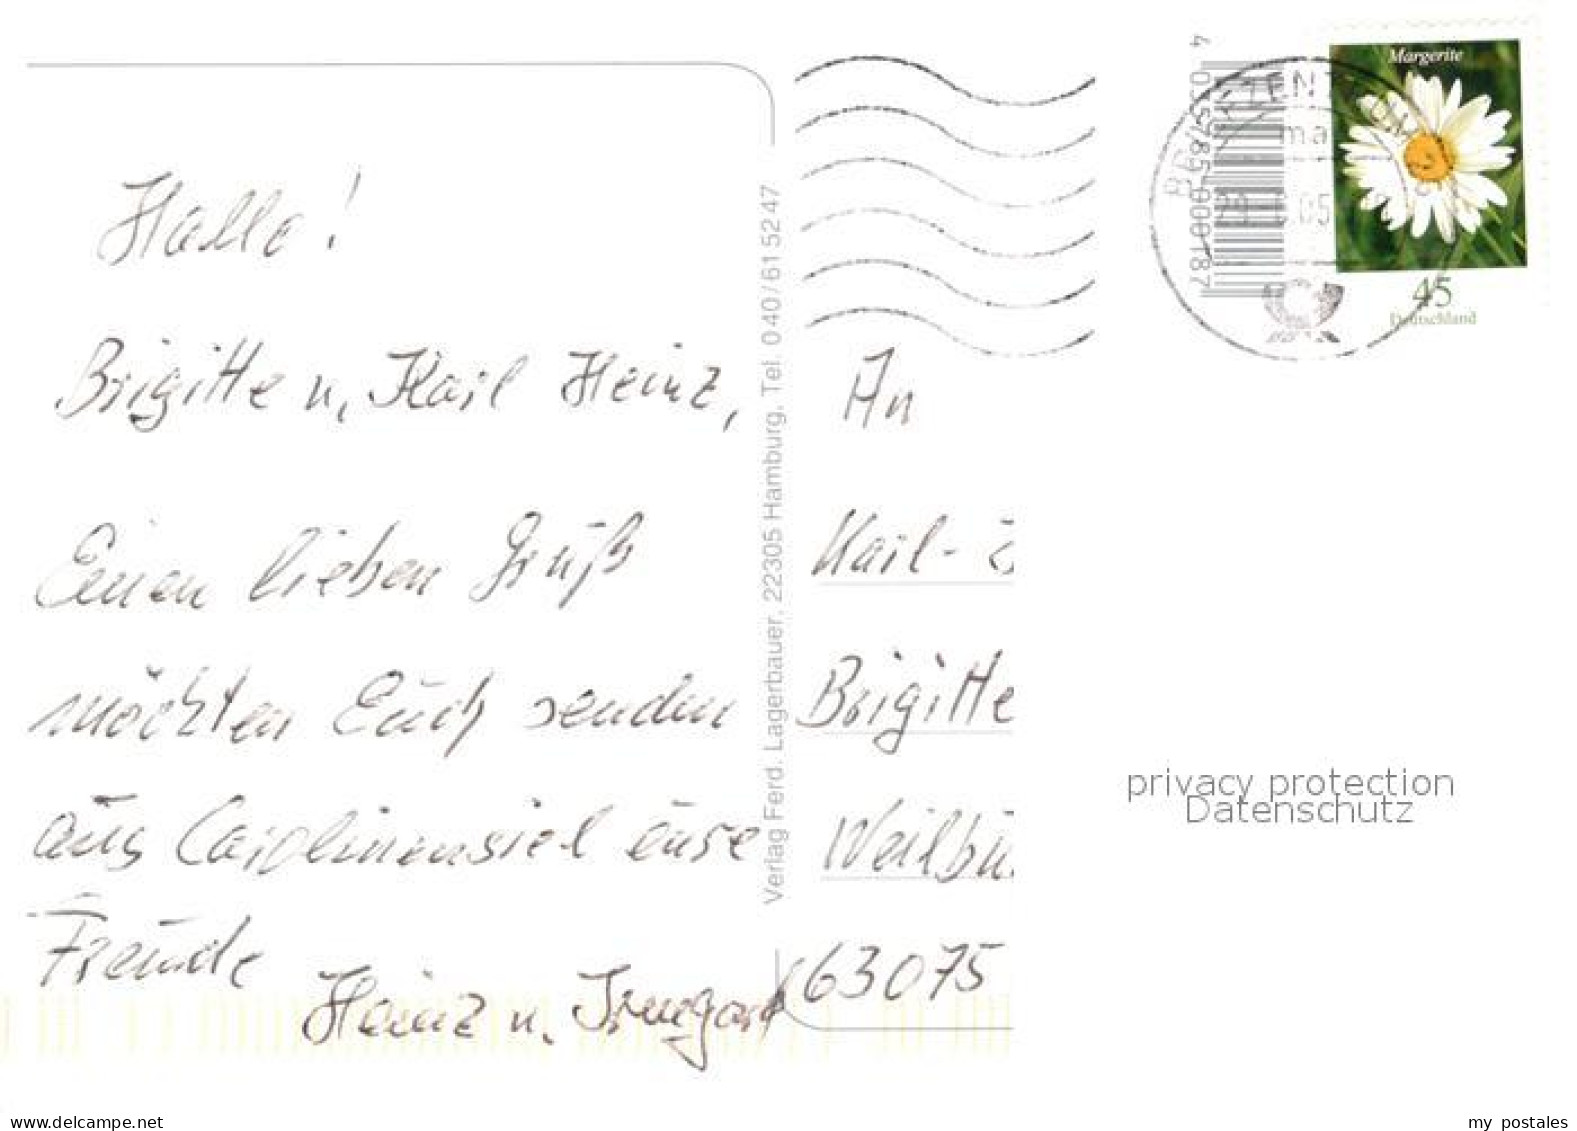 Hallo!
Brigitte u. Karl Heinz,
Einen lieben Gruß
möchten Euch senden
aus Carolinensiel eure
Freunde
Heinz u. Irmgard
Verlag Ferd. Lagerbauer, 22305 Hamburg, Tel. 040/61 52 47
An
Karl-
Brigitte
Weilbü
63075
4 035785 000187
Margerite
45
Deutschland
privacy protection
Datenschutz
www.delcampe.net
my postales